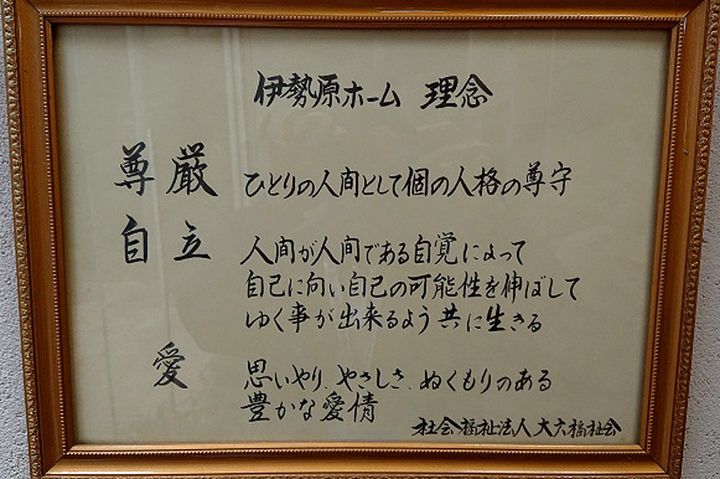 伊勢原ホーム 理念
尊厳 ひとりの人間として個の人格の尊守
自立 人間が人間である自覚によって
自己に向い自己の可能性を伸ばして
ゆく事が出来るよう共に生きる
愛 思いやり、やさしさ、ぬくもりのある
豊かな愛情
社会福祉法人大六福祉会